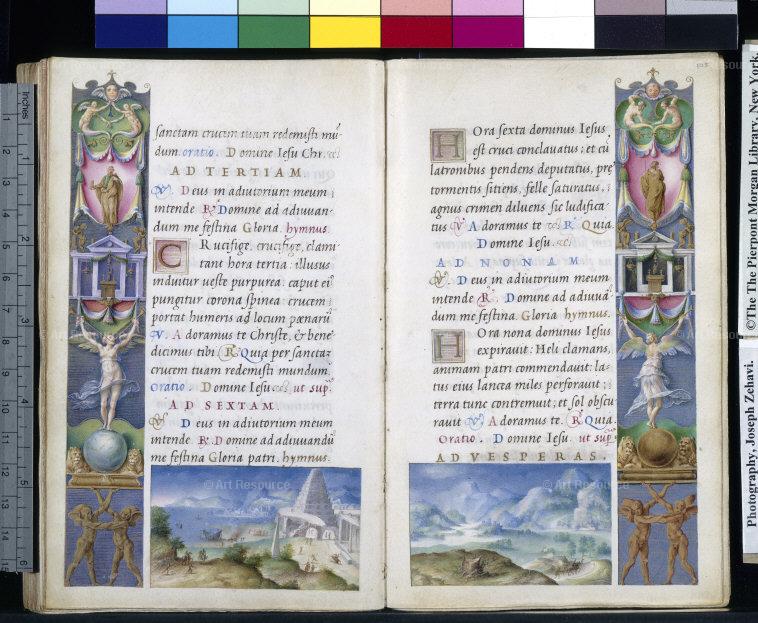 sanctam crucem tuam redemisti mū/
dum. oratio. Domine Iesu Chr.
AD TERTIAM
V. Deus in adiutorium meum
intende R. Domine ad adiuuan/
dum me festina Gloria. hymnus.
CRucifige, crucifige, clami
tant hora tertia: illusus
induitur ueste purpurea: caput ei9
pungitur corona spinea: crucem
portat humeris ad locum pœnarū
V. Adoramus te Christe, & bene/
dicimus tibi R. Quia per sanctaz
crucem tuam redemisti mundum
Oratio. Domine Iesu ut sup.
AD SEXTAM.
V. Deus in adiutorium meum
intende R. Domine ad adiuuandū
me festina Gloria patri. hymnus.
105
HOra sexta dominus Iesus
est cruci conclauatus: et cū
latronibus pendens deputatus, prę
tormentis sitiens, felle saturatus,
agnus crimen diluens sic ludifica/
tus V. Adoramus te R. Quia.
Domine Iesu.
AD NONAM
V. Deus in adiutorium meum
intende R. Domine ad adiuuā/
dum me festina. Gloria hymnus.
HOra nona dominus Iesus
expirauit: Heli clamans,
animam patri commendauit: la/
tus eius lancea miles perforauit:
terra tunc contremuit, et sol obscu
rauit V. Adoramus te. R. Quia.
Oratio. Domine Iesu. ut sup
AD VESPERAS.
© Art Resource
© Art Resource
Inches
1
2
3
4
5
6
©The The Pierpont Morgan Library, New York.
Photography, Joseph Zehavi.